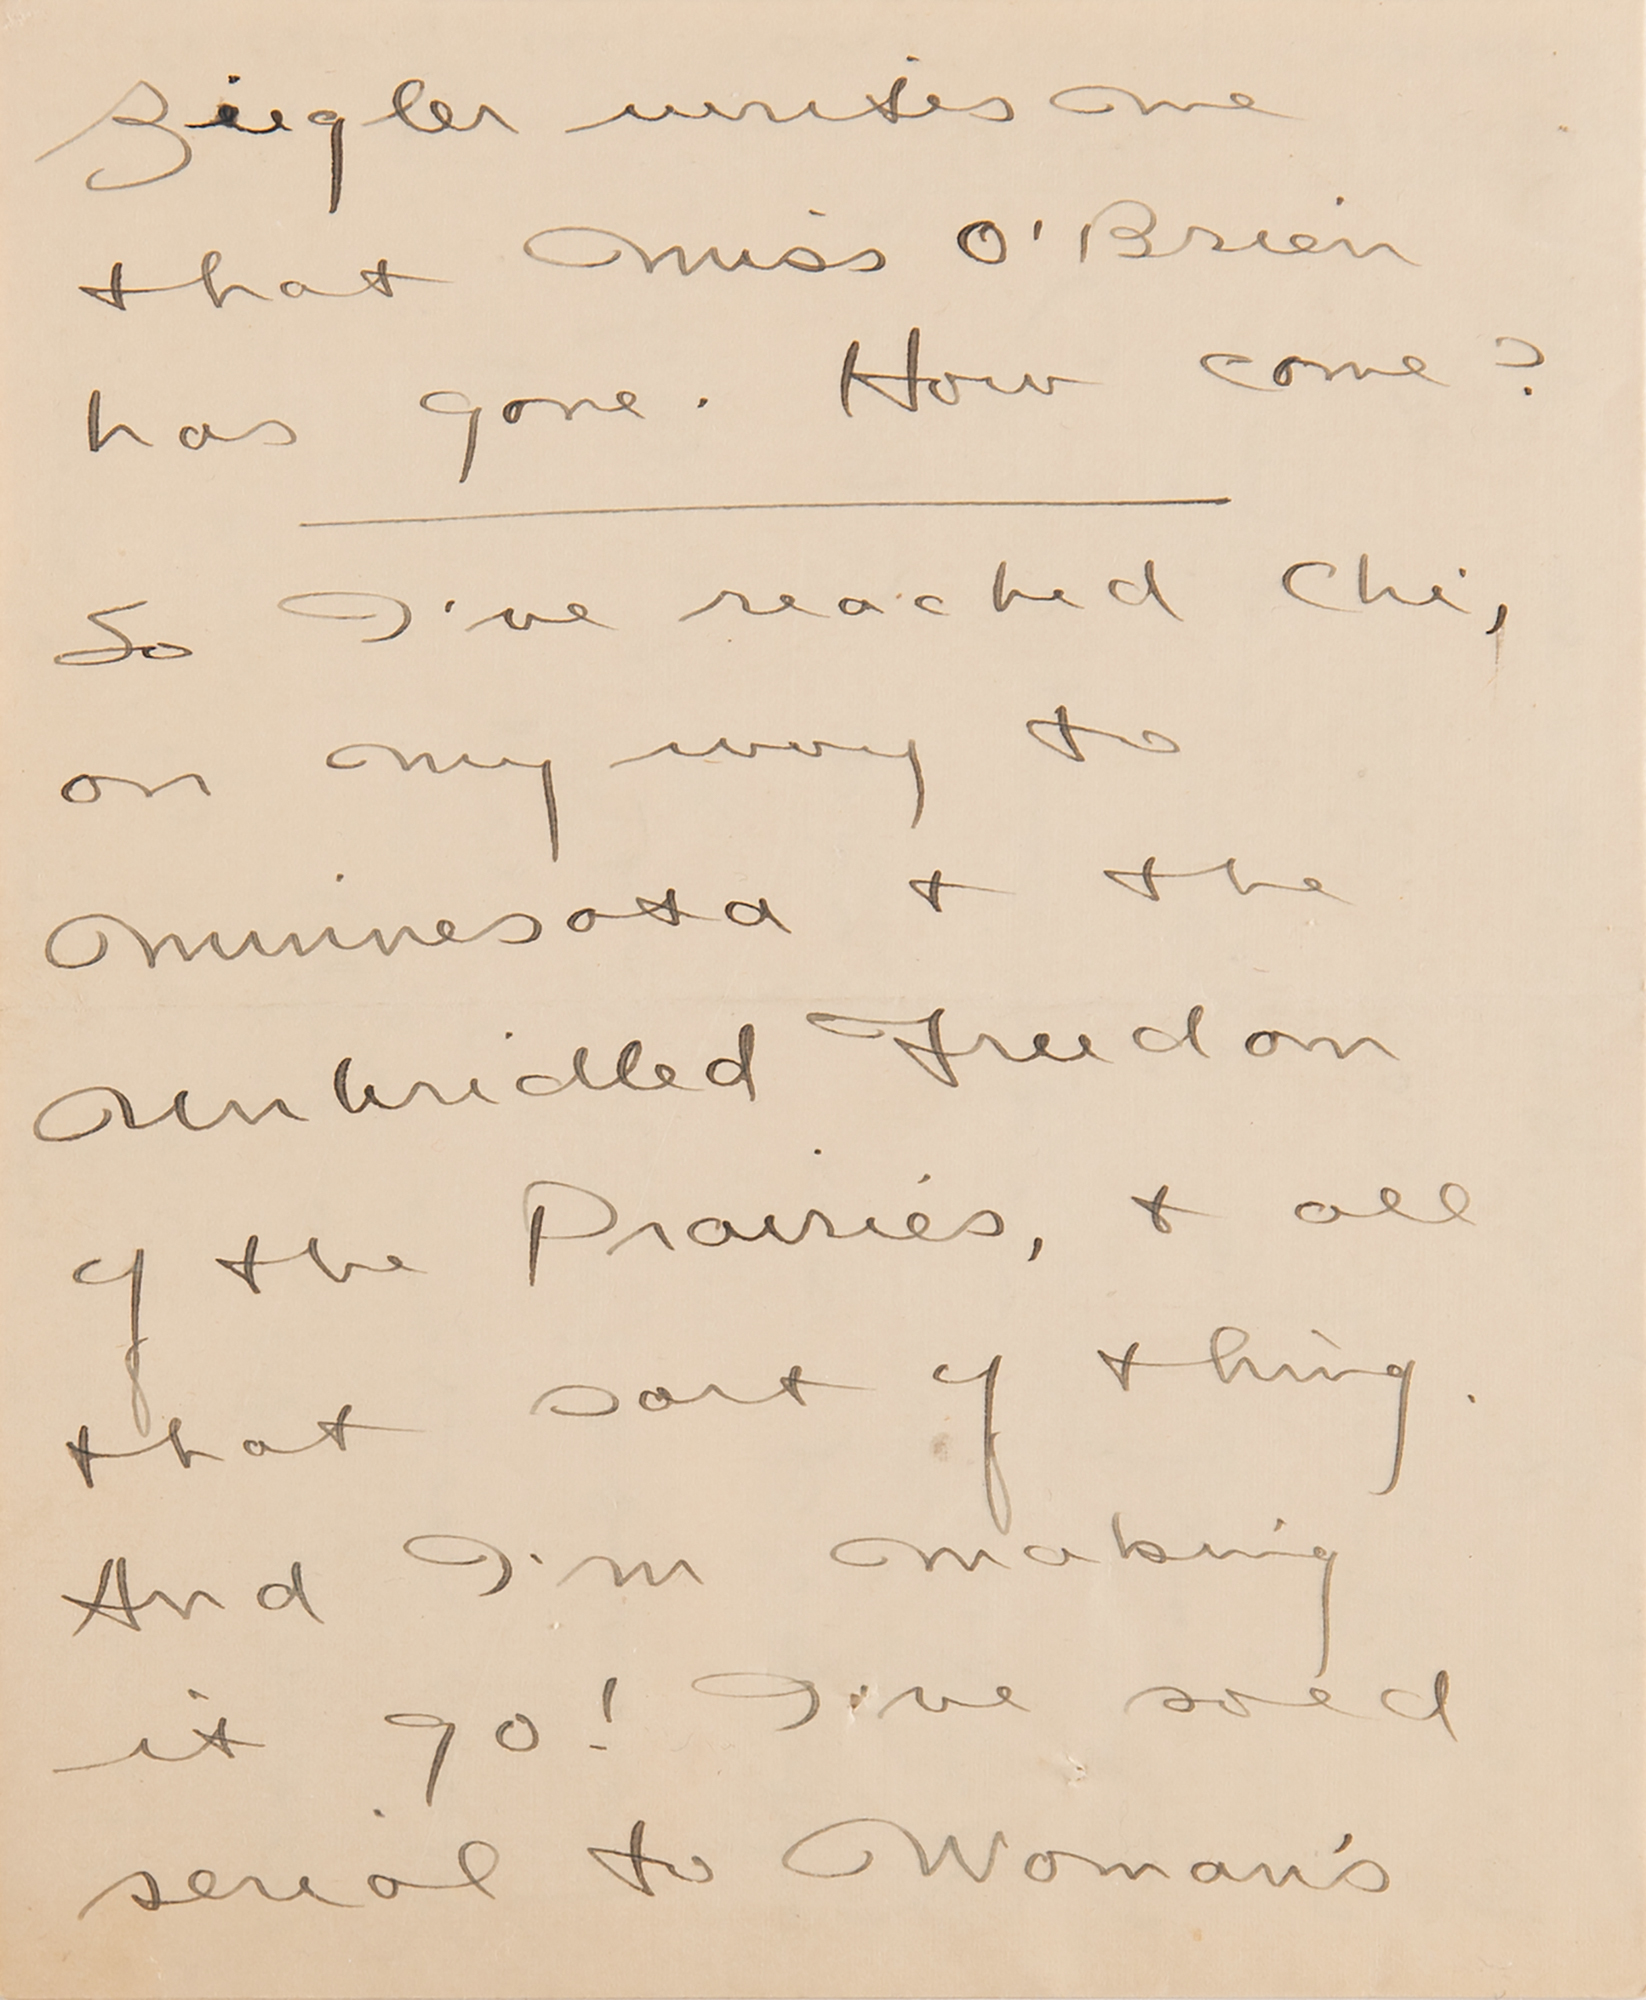 Ziegler writes me
that Miss O'Brien
has gone. How come?
So I've reached Chi,
on my way to
Minnesota + the
Unbridled Freedom
of the Prairies, + all
that sort of thing.
And I'm making
it go! I've sold
serial to Woman's